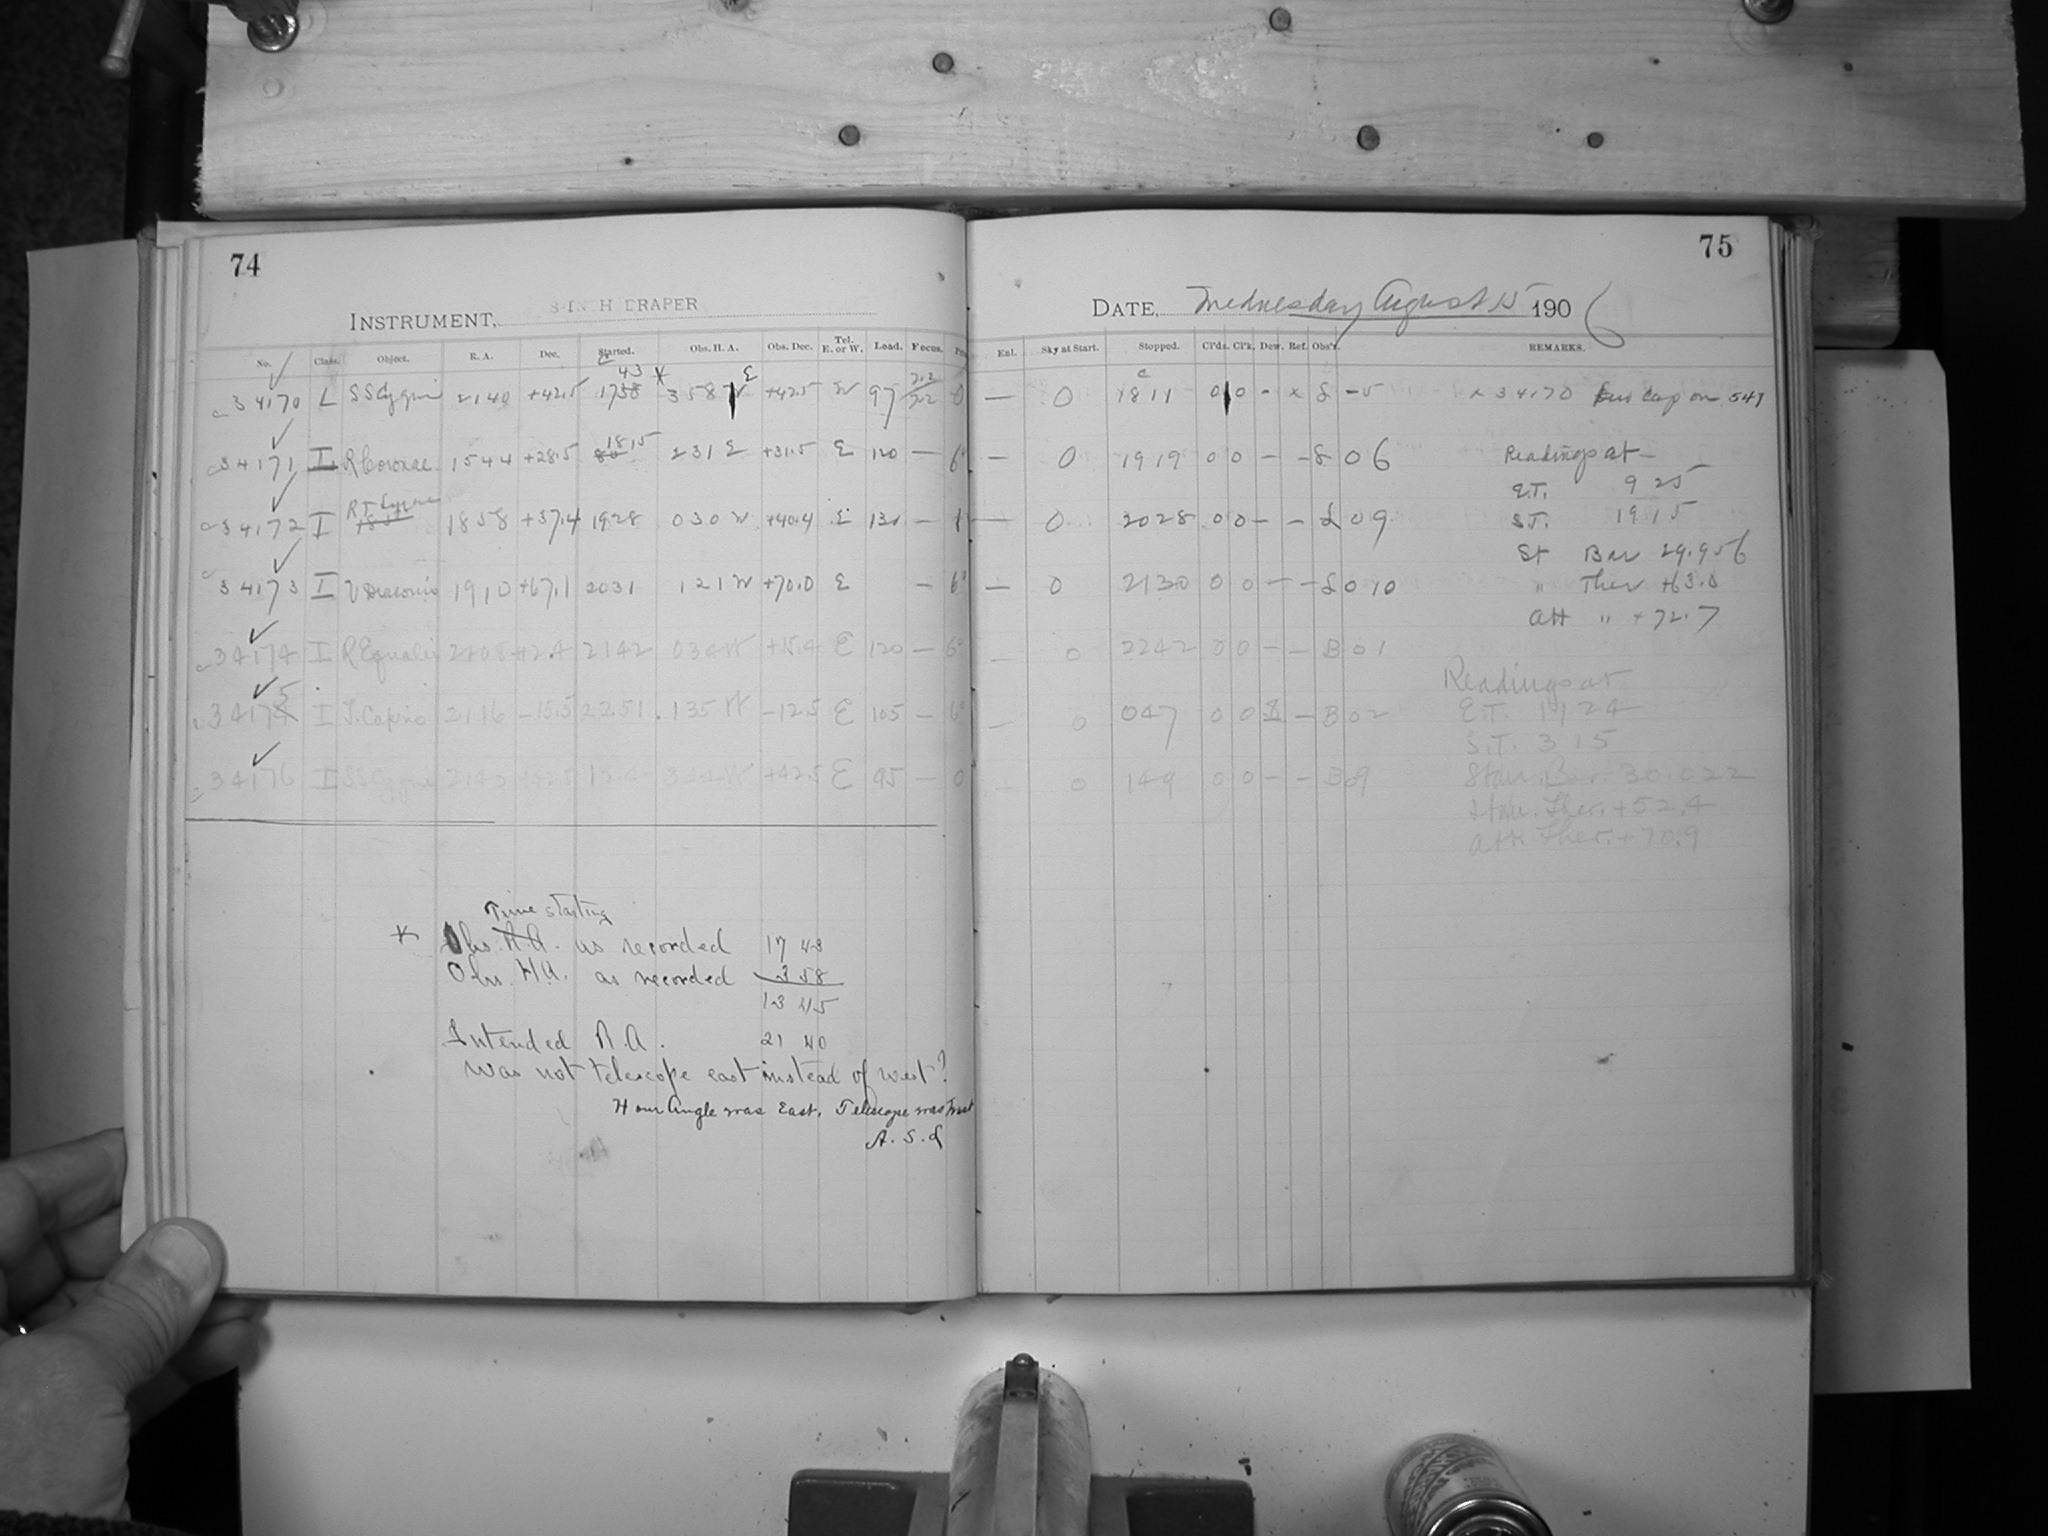 74
INSTRUMENT, 8-INCH DRAPER
No. Class. Object. R. A. Dec. Started. Obs. H. A. Obs. Dec. Tel. E. or W. Lead. Focus.
c 34170 L SS Cygni 2140 +42.5 1738 43 * 358 W E +42.5 W 97 0
c 34171 I R Coronae 1544 +28.5 1815 231 E +31.5 E 120 — 6°
c 34172 I RT Cygni 1858 +37.4 1928 030 W +40.4 E —
34173 I V Draconis 1910 +67.1 2031 121 W +70.0 E — 6°
c 34174 I R Equulei 2142 034 W +15.4 E 120 — 6°
34175 I T. Capric 2116 -15.5 2251 135 W -12.5 E 105 — 6°
c 34176 I SS Cygni +42.5 W +42.5 E 95 — 0
Time starting
* Obs. R.A. as recorded 17 43
Obs. H.A. as recorded 3 58
13 45
Intended R.A. 21 40
Was not telescope east instead of west?
Hour Angle was East, Telescope was West
A. S. L
75
DATE, Wednesday August 15 1906
Enl. Sky at Start. Stopped. Cl'ds. Cl'k. Dew. Ref. Obs'r. REMARKS.
— 0 1811 0 0 - x L -5 x 34170 cap on
— 0 1919 0 0 - - L 06 Readings at —
E.T. 9 25
— 0 2028 0 0 - - L 09 S.T. 19 15
St Bar 29.956
— 0 2130 0 0 - - L 010 " Ther +63.8
Att " +72.7
— 0 2242 0 0 - - B 01
Readings at
— 0 047 0 0 - B 02 E.T. 17 24
S.T. 3 15
— 0 149 0 0 - - B 09 Stan. Bar. 30.022
Stan. Ther. +52.4
Att. Ther. +70.9